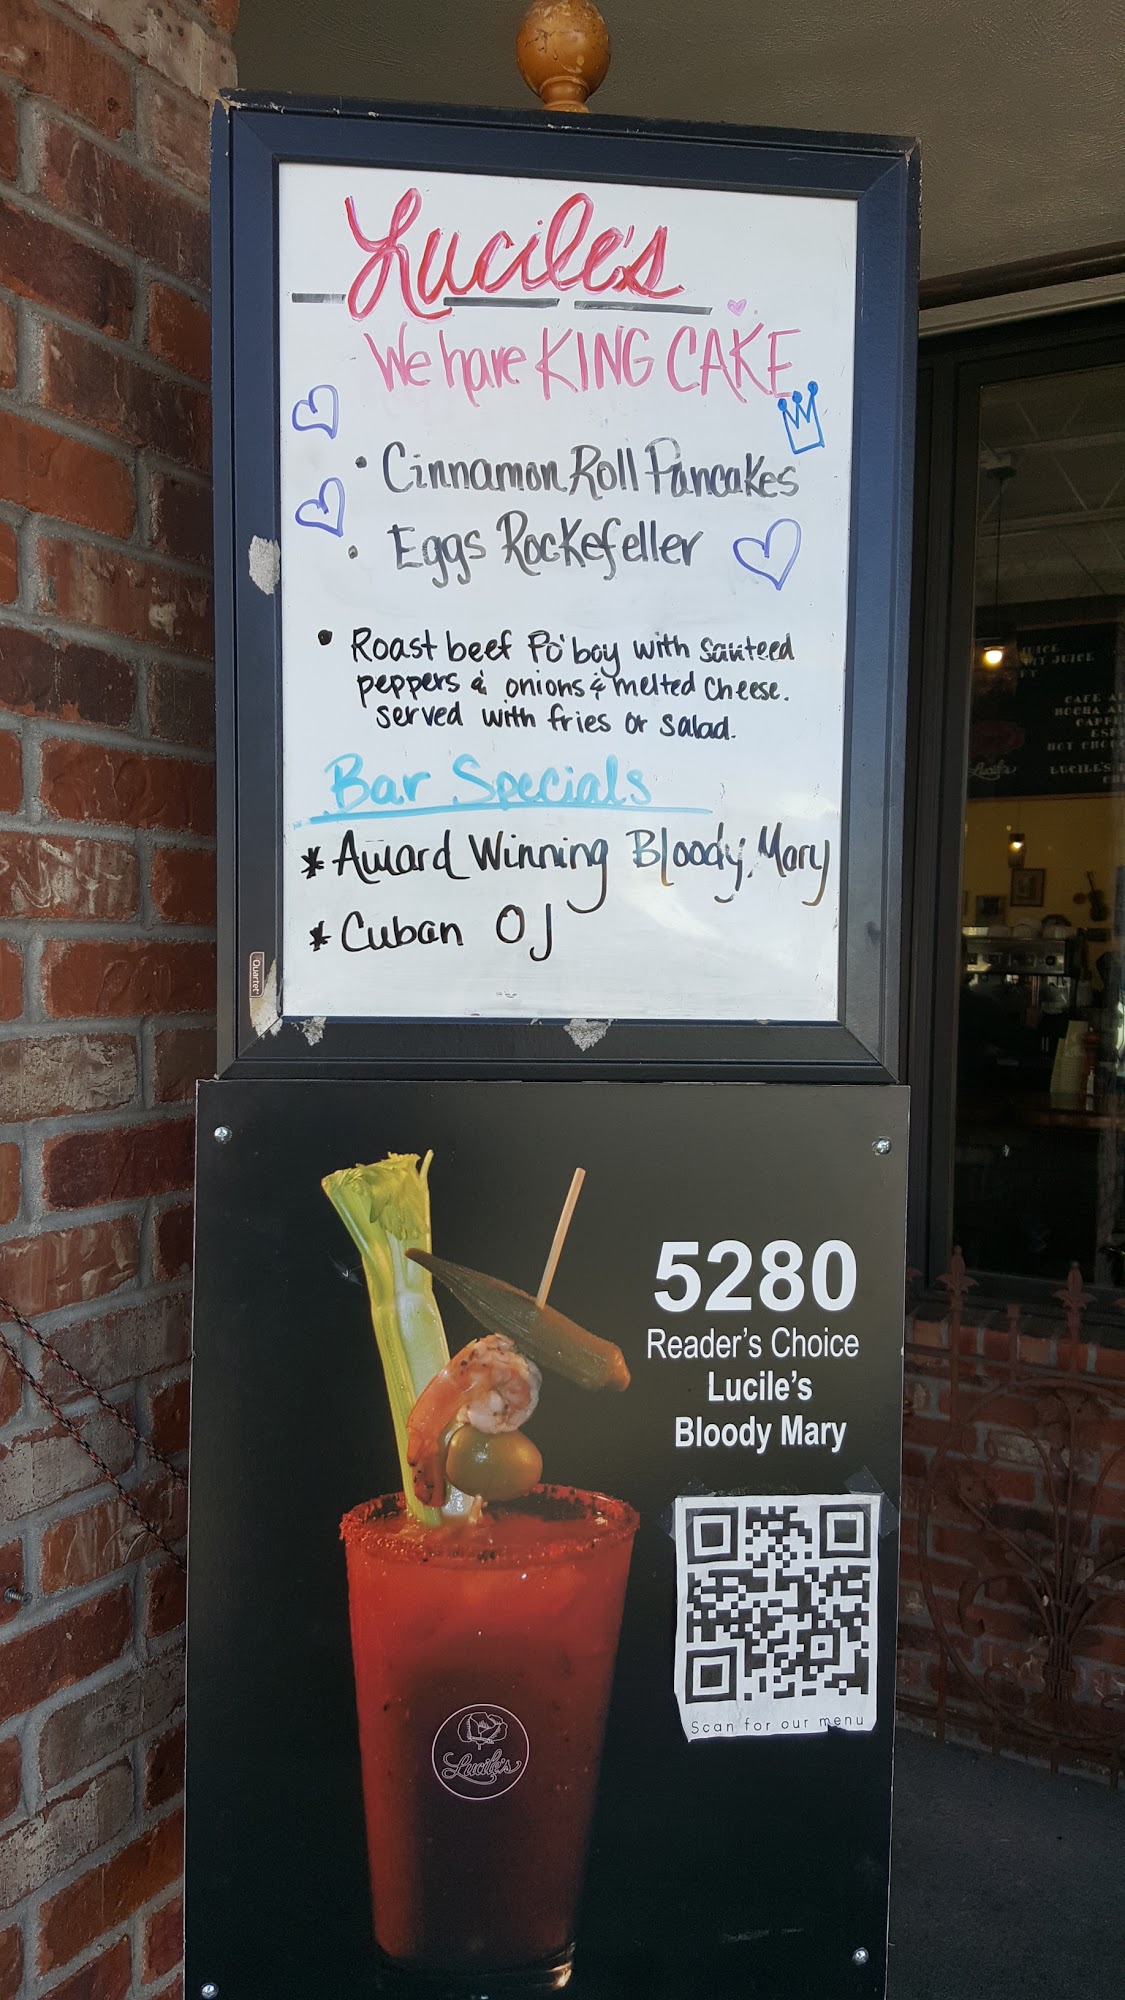 Lucile's
We have KING CAKE
• Cinnamon Roll Pancakes
• Eggs Rockefeller
• Roast beef Po'boy with sauteed
peppers & onions & melted cheese.
served with fries or salad.
Bar Specials
* Award Winning Bloody Mary
* Cuban OJ
Quartet
5280
Reader's Choice
Lucile's
Bloody Mary
Scan for our menu
Lucile's
JUICE
JUICE
CAFE
HOT
Lucile's
LUCILE'S